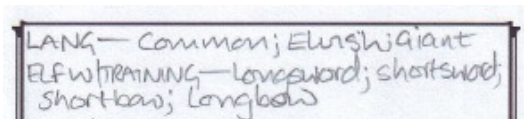 LANG — Common; Elvish; Giant
ELF W/TRAINING — Longsword; shortsword;
Shortbow; Longbow